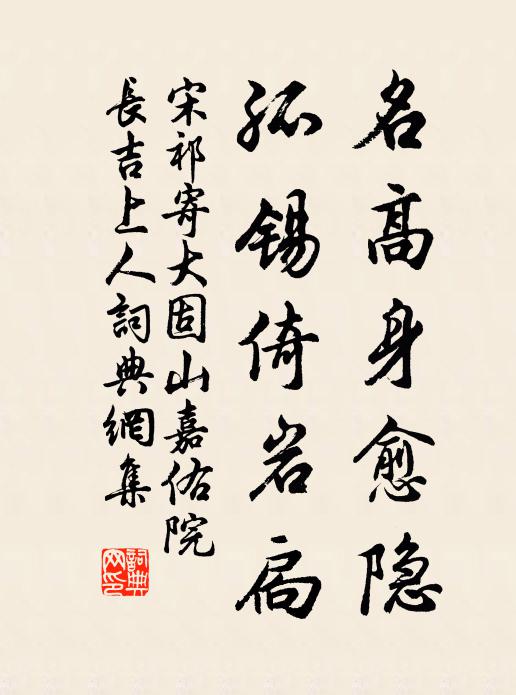 名高身愈隐
孤锡倚岩扃
宋祁寄大固山嘉佑院
長吉上人詞典網集
詞典網印